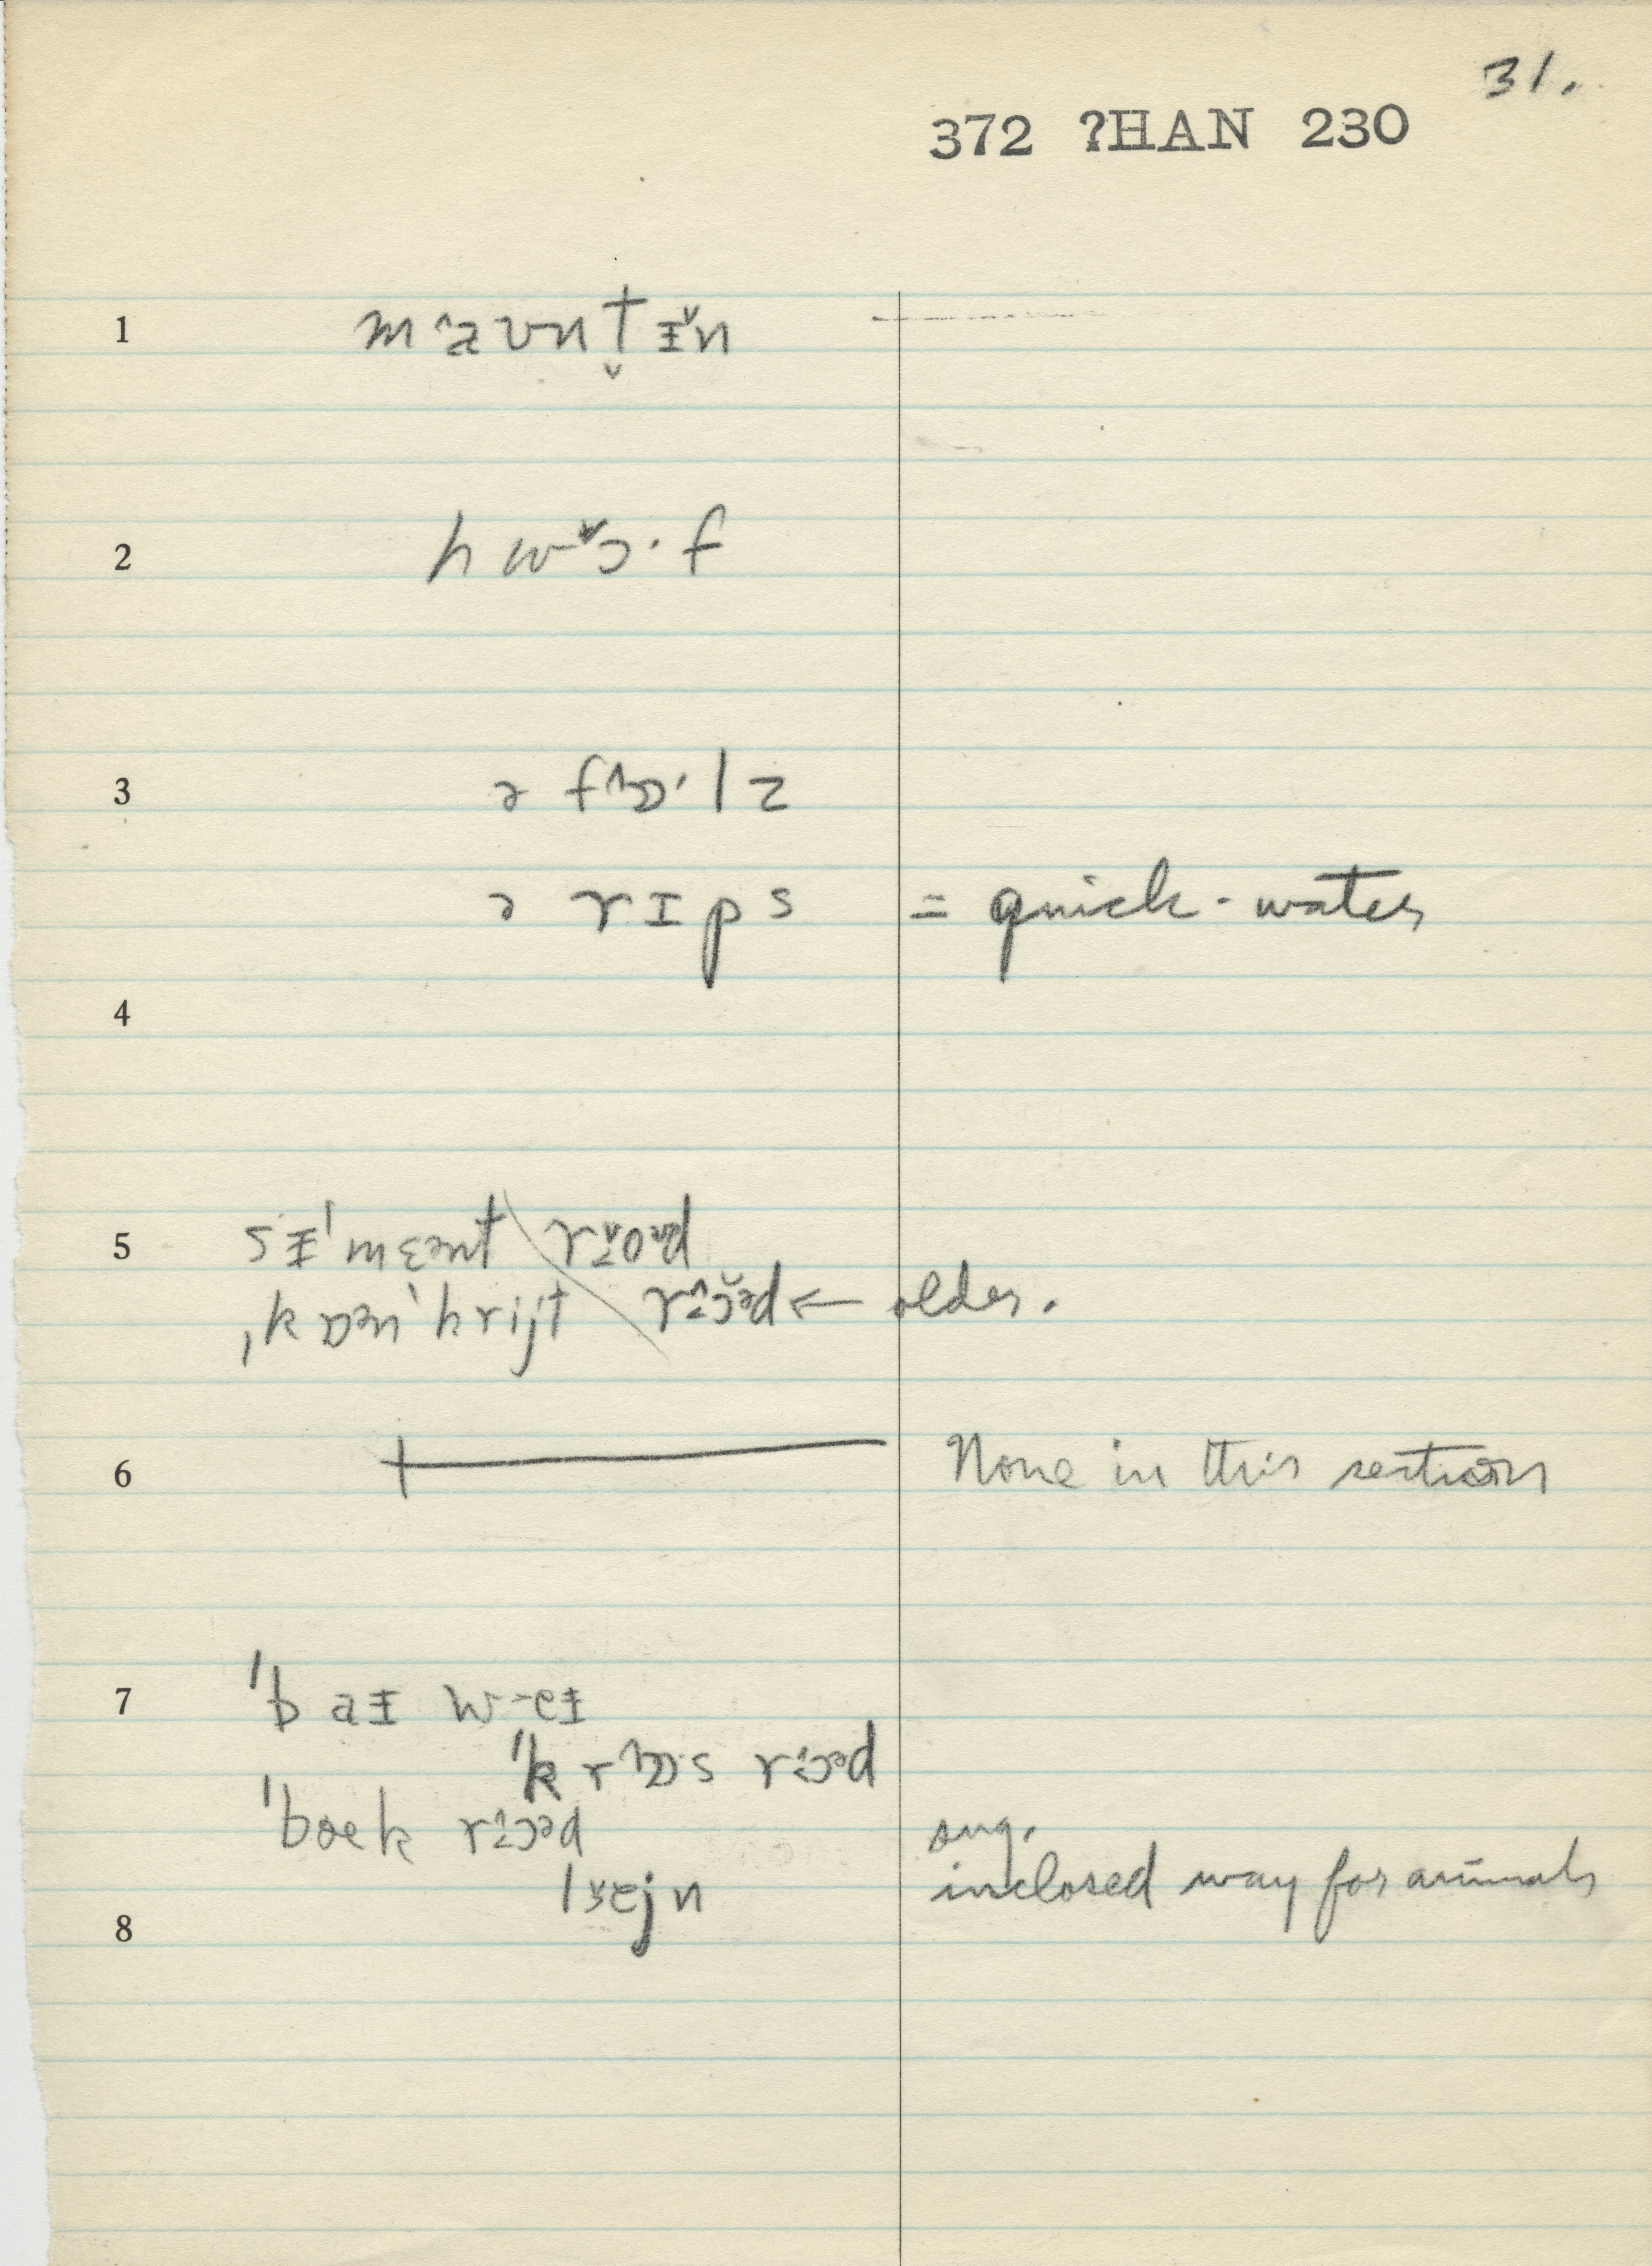 31.
372 ?HAN 230
1 maʊntɨ̌n
2 hwɔ·f
3 ə fɒ·lz
ə rɪps = quick-water
4
5 sɨˈmɛənt roəd
ˌkɒənˈkrijt rɔəd ← older.
6 None in this section
7 ˈb aɨ w eɨ
ˈk rɒs rɔəd
ˈbæk rɔəd sug.
lejn inclosed way for animals
8